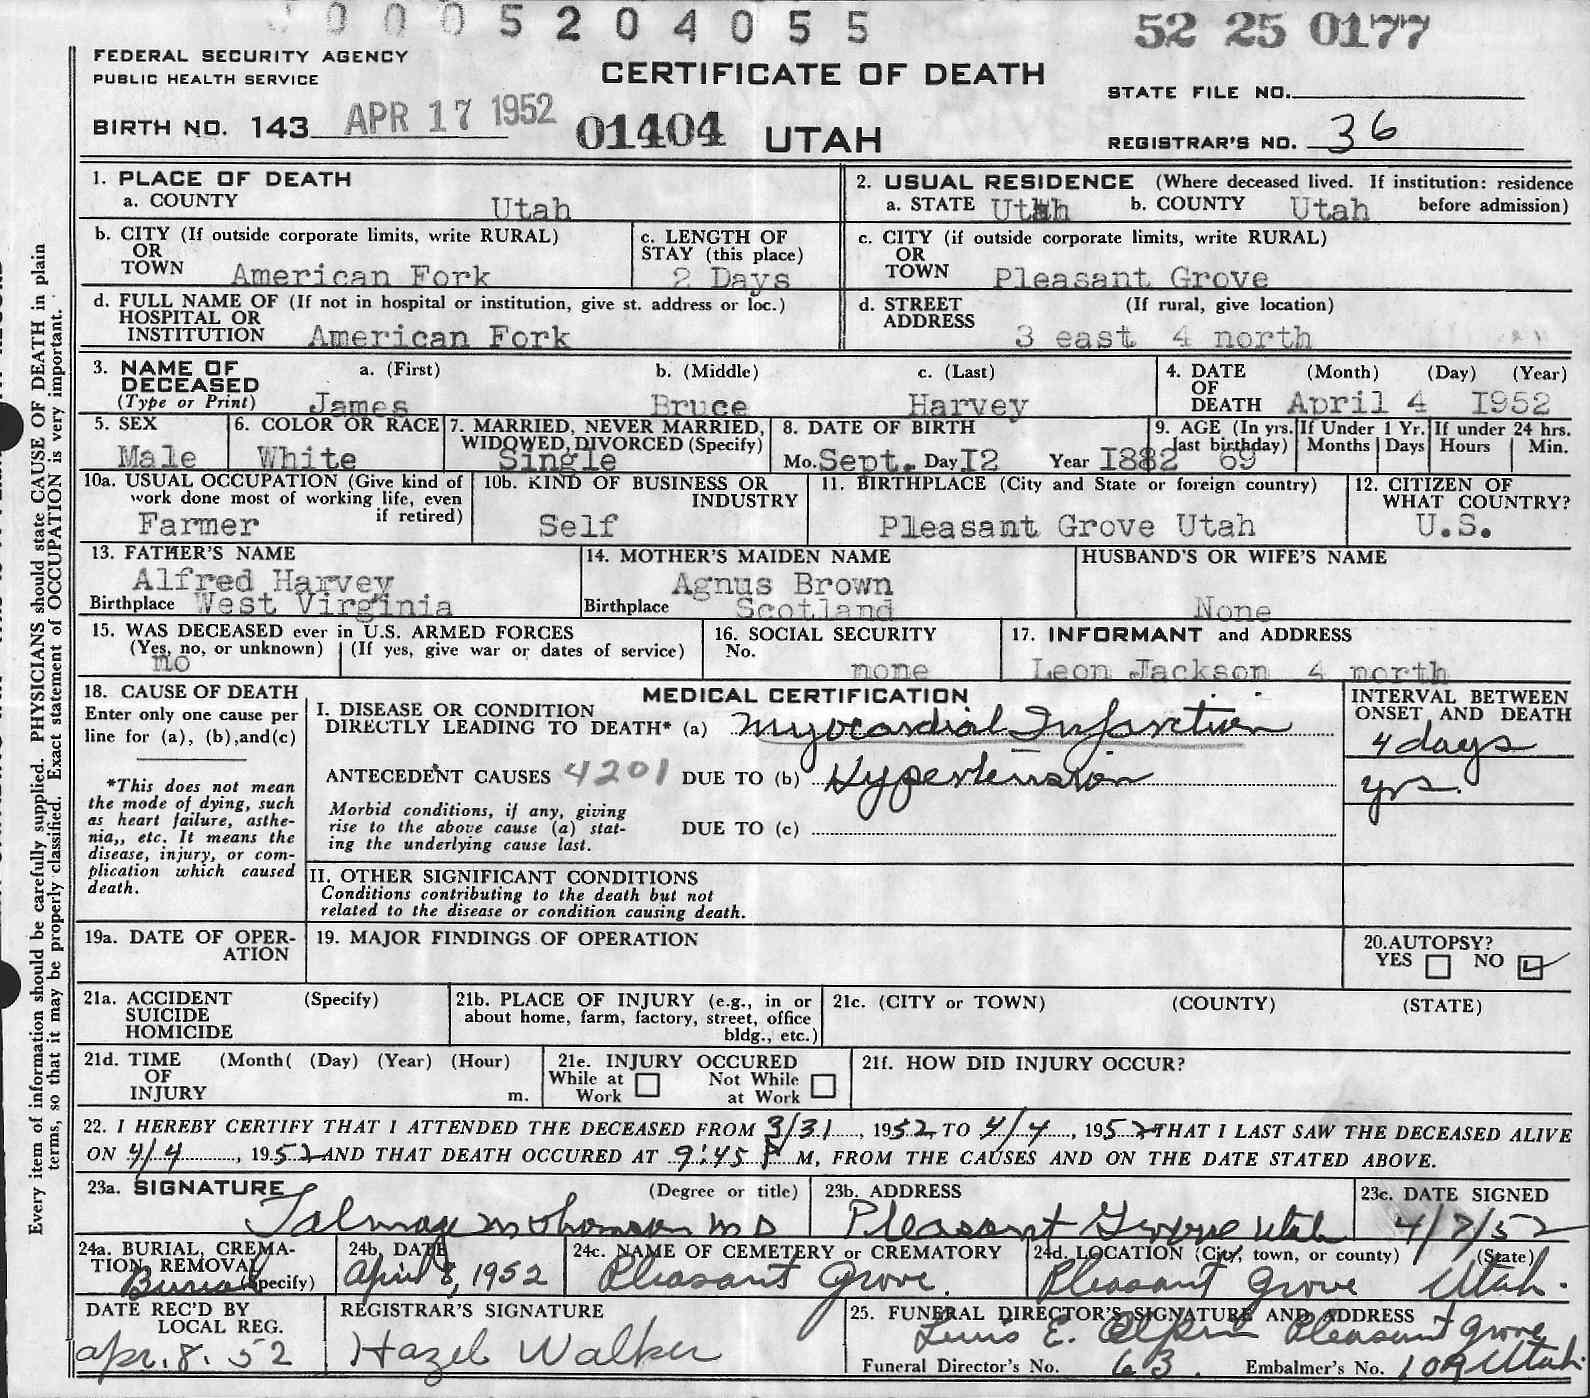 0 0 0 5 2 0 4 0 5 5
52 25 0177
FEDERAL SECURITY AGENCY
PUBLIC HEALTH SERVICE
CERTIFICATE OF DEATH
STATE FILE NO.
BIRTH NO. 143 APR 17 1952 01404 UTAH
REGISTRAR'S NO. 36
1. PLACE OF DEATH
a. COUNTY Utah
2. USUAL RESIDENCE (Where deceased lived. If institution: residence
a. STATE Utah b. COUNTY Utah before admission)
b. CITY (If outside corporate limits, write RURAL)
OR
TOWN American Fork
c. LENGTH OF
STAY (this place)
2 Days
c. CITY (if outside corporate limits, write RURAL)
OR
TOWN Pleasant Grove
d. FULL NAME OF (If not in hospital or institution, give st. address or loc.)
HOSPITAL OR
INSTITUTION American Fork
d. STREET (If rural, give location)
ADDRESS 3 east 4 north
3. NAME OF a. (First) b. (Middle) c. (Last)
DECEASED
(Type or Print) James Bruce Harvey
4. DATE (Month) (Day) (Year)
OF
DEATH April 4 I952
5. SEX
Male
6. COLOR OR RACE
White
7. MARRIED, NEVER MARRIED,
WIDOWED, DIVORCED (Specify)
Single
8. DATE OF BIRTH
Mo. Sept. Day I2 Year I882
9. AGE (In yrs.
last birthday) 69
If Under 1 Yr.
Months Days
If under 24 hrs.
Hours Min.
10a. USUAL OCCUPATION (Give kind of
work done most of working life, even
if retired)
Farmer
10b. KIND OF BUSINESS OR
INDUSTRY
Self
11. BIRTHPLACE (City and State or foreign country)
Pleasant Grove Utah
12. CITIZEN OF
WHAT COUNTRY?
U.S.
13. FATHER'S NAME
Alfred Harvey
Birthplace West Virginia
14. MOTHER'S MAIDEN NAME
Agnus Brown
Birthplace Scotland
HUSBAND'S OR WIFE'S NAME
None
15. WAS DECEASED ever in U.S. ARMED FORCES
(Yes, no, or unknown) (If yes, give war or dates of service)
no
16. SOCIAL SECURITY
No.
none
17. INFORMANT and ADDRESS
Leon Jackson 4 north
18. CAUSE OF DEATH
Enter only one cause per
line for (a), (b),and(c)
*This does not mean
the mode of dying, such
as heart failure, asthe-
nia,, etc. It means the
disease, injury, or com-
plication which caused
death.
MEDICAL CERTIFICATION
I. DISEASE OR CONDITION
DIRECTLY LEADING TO DEATH* (a) Myocardial Infarction
ANTECEDENT CAUSES 4201 DUE TO (b) Hypertension
Morbid conditions, if any, giving
rise to the above cause (a) stat-
ing the underlying cause last.
DUE TO (c)
INTERVAL BETWEEN
ONSET AND DEATH
4 days
yrs.
II. OTHER SIGNIFICANT CONDITIONS
Conditions contributing to the death but not
related to the disease or condition causing death.
19a. DATE OF OPER-
ATION
19. MAJOR FINDINGS OF OPERATION
20. AUTOPSY?
YES NO
21a. ACCIDENT (Specify)
SUICIDE
HOMICIDE
21b. PLACE OF INJURY (e.g., in or
about home, farm, factory, street, office
bldg., etc.)
21c. (CITY or TOWN) (COUNTY) (STATE)
21d. TIME (Month( (Day) (Year) (Hour)
OF
INJURY m.
21e. INJURY OCCURED
While at Not While
Work at Work
21f. HOW DID INJURY OCCUR?
22. I HEREBY CERTIFY THAT I ATTENDED THE DECEASED FROM 3/31, 1952 TO 4/4, 1952 THAT I LAST SAW THE DECEASED ALIVE
ON 4/4, 1952 AND THAT DEATH OCCURED AT 9:45 P M, FROM THE CAUSES AND ON THE DATE STATED ABOVE.
23a. SIGNATURE (Degree or title)
Talmage M Thomson M D
23b. ADDRESS
Pleasant Grove Utah
23c. DATE SIGNED
4/7/52
24a. BURIAL, CREMA-
TION, REMOVAL
(Specify)
Burial
24b. DATE
April 8, 1952
24c. NAME OF CEMETERY or CREMATORY
Pleasant Grove.
24d. LOCATION (City, town, or county) (State)
Pleasant Grove Utah.
DATE REC'D BY
LOCAL REG.
apr. 8. 52
REGISTRAR'S SIGNATURE
Hazel Walker
25. FUNERAL DIRECTOR'S SIGNATURE AND ADDRESS
E. Olpin Pleasant Grove
Utah.
Funeral Director's No. 63. Embalmer's No. 109
Every item of information should be carefully supplied. PHYSICIANS should state CAUSE OF DEATH in plain
terms, so that it may be properly classified. Exact statement of OCCUPATION is very important.